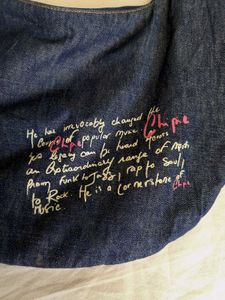 He has irrevocably changed the
course of popular music Chipie
his legacy can be heard across
Chipie
an extraordinary range of music
from funk to Jazz, rap to Soul,
to Rock. He is a Cornerstone of
Chipie
music.